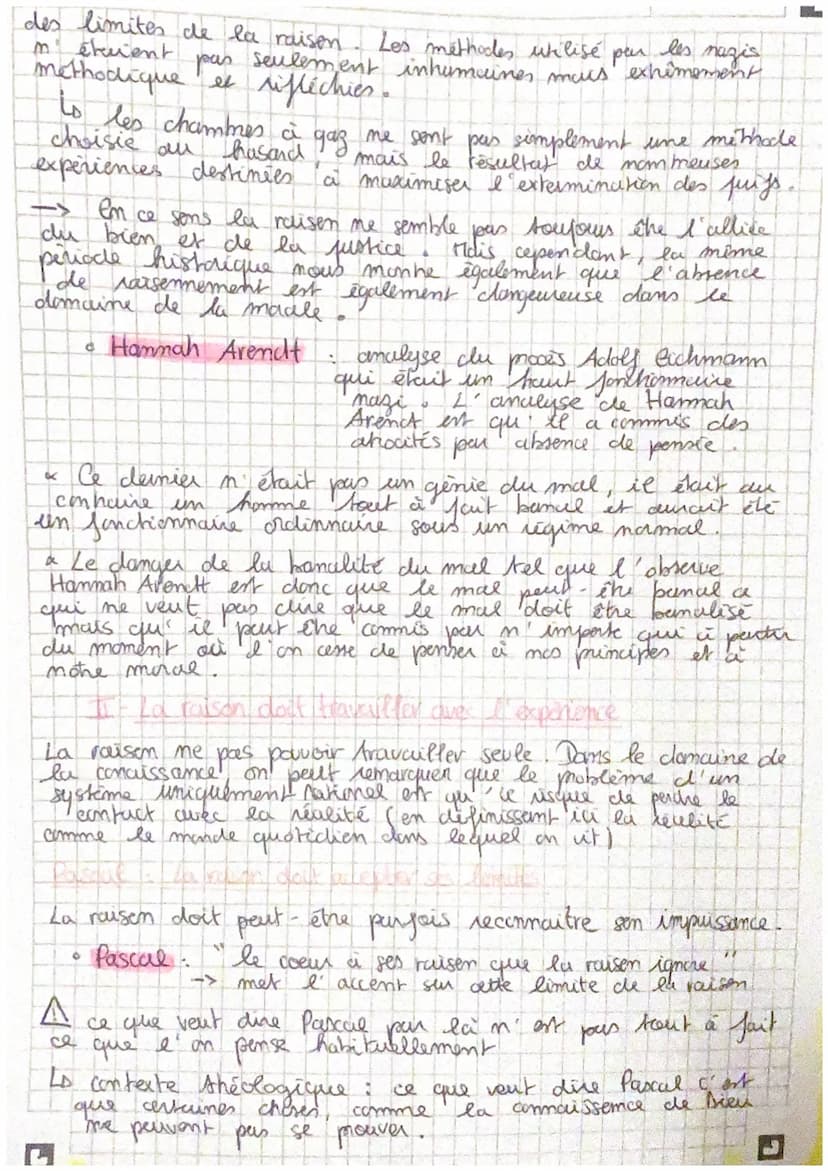 des limites de la raison. Les méthodes utilisé par les nazis
n'étaient pas seulement inhumaines mais exhimement
méthodique et réfléchies.
↳ les chambres à gaz ne sont pas simplement une méthode
choisie au hasard, mais le résultat de nombreuses
expériences destinées à maximiser l'extermination des juifs.
--> En ce sens la raison ne semble pas toujours être l'alliée
du bien et de la justice. Mais cependant, la même
période historique nous montre également que l'absence
de raisennement est également dangeureuse dans le
domaine de la morale.
• Hannah Arendt : analyse du procès Adolf Eichmann
qui était un haut fonctionnaire
nazi. L'analyse de Hannah
Arendt est qu'il a commis des
atrocités par absence de pensée.
Ce dernier n'était pas un génie du mal, il était au
contraire un homme tout à fait banal et aurait été
un fonctionnaire ordinnaire sous un régime normal.
Le danger de la banalité du mal tel que l'observe
Hannah Arendt est donc que le mal peut-être banal ce
qui ne veut pas dire que le mal doit être banalisé
mais qu'il peut être commis par n'importe qui à partir
du moment où l'on cesse de penser à nos principes et à
notre morale.
II - La raison doit travailler avec l'expérience
La raison ne pas pouvoir travailler seule. Dans le domaine de
la conaissance, on peut remarquer que le problème d'un
système uniquement rationel est qu'il risque de perdre le
contact avec la réalité (en définissant ici la réalité
comme le monde quotidien dans lequel on vit)
Pascal : La raison doit accepter ses limites
La raison doit peut-être parfois reconnaitre son impuissance.
• Pascal : "le coeur à ses raison que la raison ignore"
--> met l'accent sur cette limite de la raison
⚠ ce que veut dire Pascal par là n'est pas tout à fait
ce que l'on pense habituellement
↳ contexte théologique : ce que veut dire Pascal c'est
que certaines choses, comme la connaissance de Dieu
ne peuvent pas se prouver.